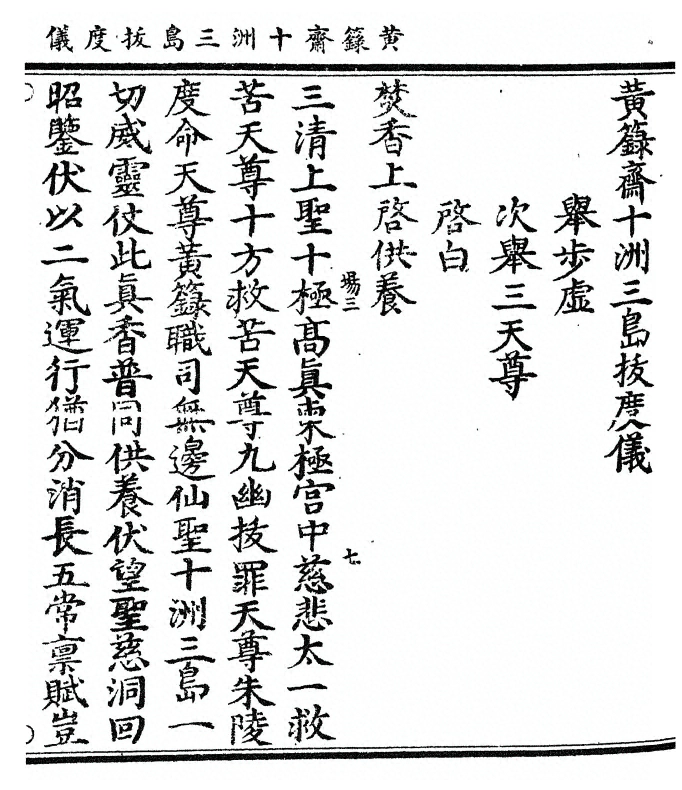 黃籙齋十洲三島拔度儀
黃籙齋十洲三島拔度儀
舉步虛
次舉三天尊
啓白
焚香上啓供養
場三
七
三清上聖十極高眞東極宫中慈悲太一救
苦天尊十方救苦天尊九幽拔罪天尊朱陵
度命天尊黃籙職司無邊仙聖十洲三島一
切威靈仗此眞香普同供養伏望聖慈洞回
昭鑒伏以二氣運行猶分消長五常禀賦豈